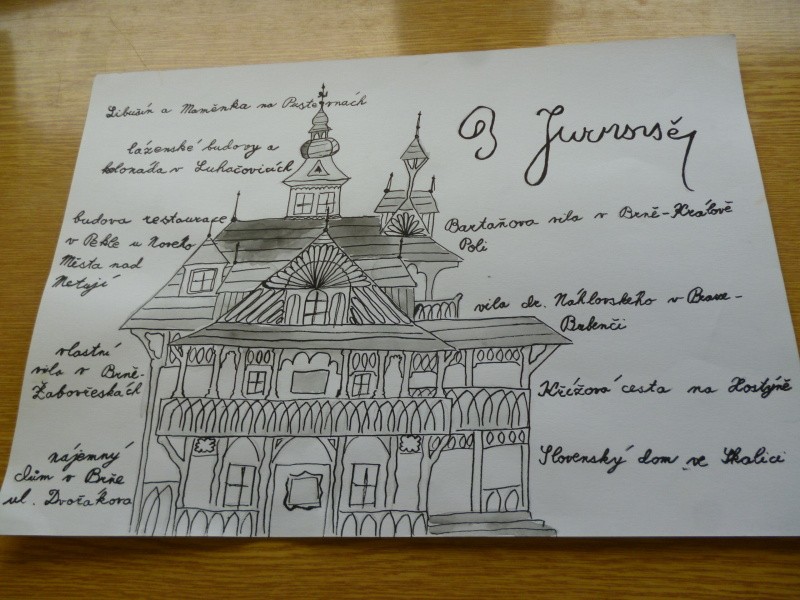 Libušín a Maměnka na Pustevnách
lázenské budovy a
kolonáda v Luhačovicích
budova restaurace
v Pekle u Noveto
Města nad
Metují
vlastní
vila v Brně-
Žabovřeskách
nájemný
dům v Brňe
ul. Dvořákova
D Jurkovič
Bartaňova vila v Brně-Králově
Poli
vila dr. Náhlovského v
Bubenči
Křížová cesta na Hostýně
Slovenský dom ve Skalici